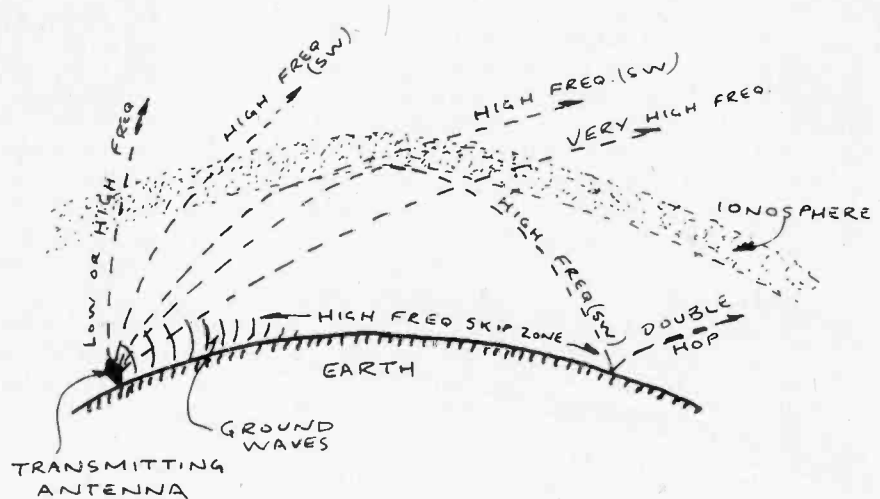 HIGH FREQ
(SW)
HIGH FREQ. (SW)
VERY HIGH FREQ.
LOW OR HIGH FREQ
IONOSPHERE
HIGH FREQ (SW)
HIGH FREQ SKIP ZONE
DOUBLE
HOP
EARTH
GROUND
WAVES
TRANSMITTING
ANTENNA